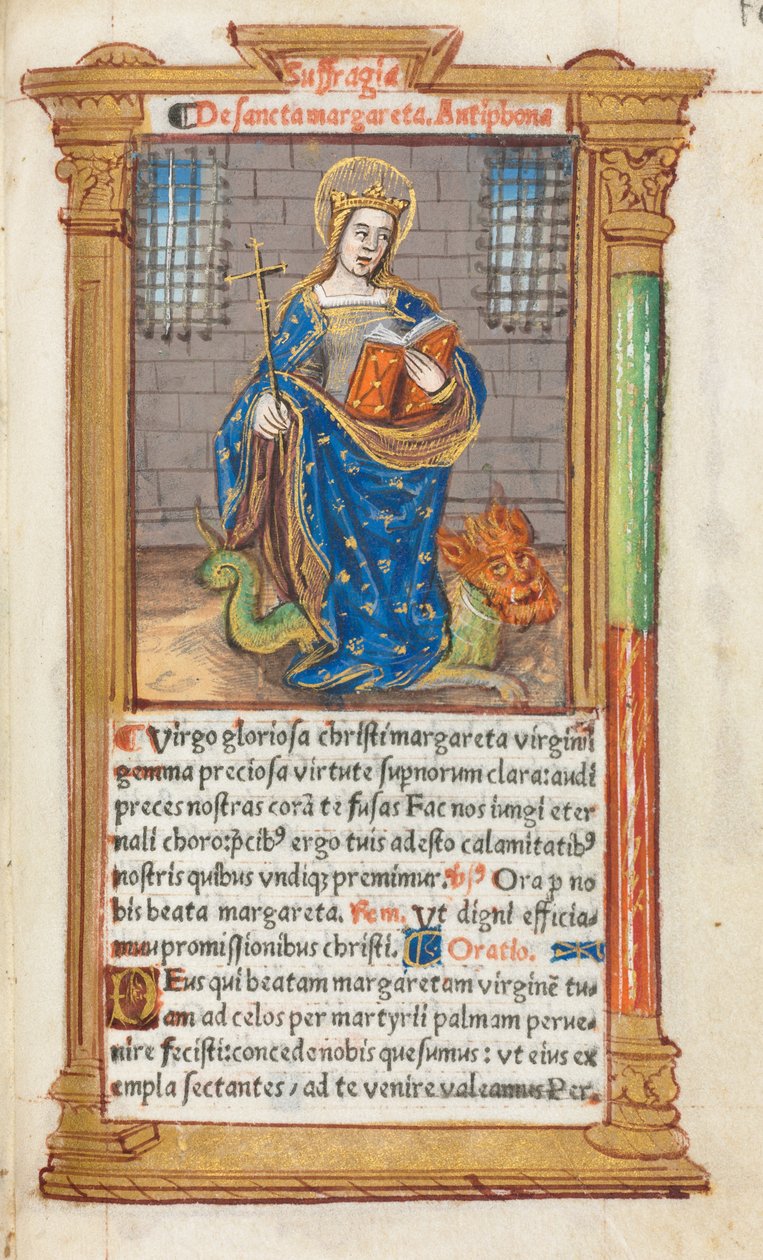 Suffragia
De sancta margareta. Antiphona
Virgo gloriosa christi margareta virginū
gemma preciosa virtute supnorum clara: audi
preces nostras corā te fusas Fac nos iungi eter
nali choro: p̄cibꝰ ergo tuis adesto calamitatibꝰ
nostris quibus vndiqꝫ premimur. Ora ꝓ no
bis beata margareta. Vt digni efficia-
mur promissionibus christi. Oratio.
DEus qui beatam margaretam virginē tu-
am ad celos per martyrii palmam perue-
nire fecisti: concede nobis quesumus: vt eius ex
empla sectantes / ad te venire valeamus Per.